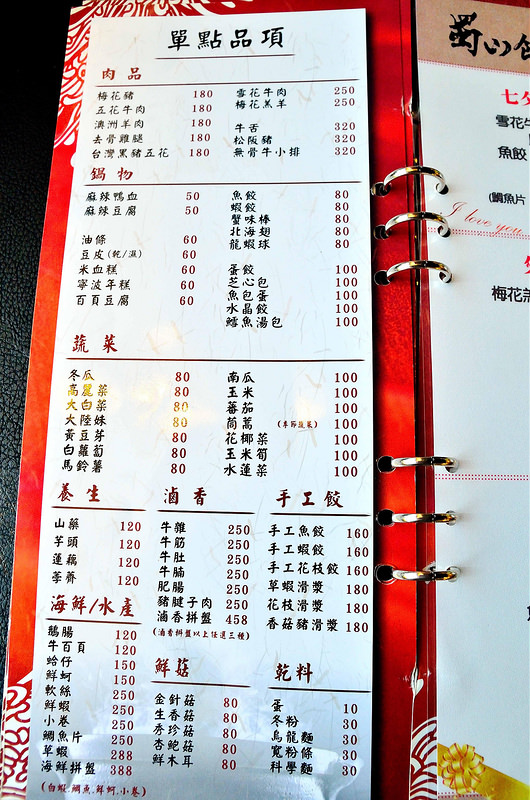 單點品項
肉品
梅花豬 180
五花牛肉 180
澳洲羊肉 180
去骨雞腿 180
台灣黑豬五花 180
雪花牛肉 250
梅花羔羊 250
牛舌 320
松阪豬 320
無骨牛小排 320
鍋物
麻辣鴨血 50
麻辣豆腐 50
油條 60
豆皮(乾/濕) 60
米血糕 60
寧波年糕 60
百頁豆腐 60
魚餃 80
蝦餃 80
蟹味棒 80
北海翅 80
龍蝦球 80
蛋餃 100
芝心包 100
魚包蛋 100
水晶餃 100
鱈魚湯包 100
蔬菜
冬瓜 80
高麗菜 80
大白菜 80
大陸妹 80
黃豆芽 80
白蘿蔔 80
馬鈴薯 80
南瓜 100
玉米 100
蕃茄 100
茼萵 (季節蔬菜) 100
花椰菜 100
玉米筍 100
水蓮菜 100
養生
山藥 120
芋頭 120
蓮藕 120
荸薺 120
滷香
牛雜 250
牛筋 250
牛肚 250
牛腩 250
肥腸 250
豬腱子肉 250
滷香拼盤 458
(滷香拼盤以上任選三種)
手工餃
手工魚餃 160
手工蝦餃 160
手工花枝餃 160
草蝦滑漿 180
花枝滑漿 180
香菇豬滑漿 180
海鮮/水產
鵝腸 120
牛百頁 120
蛤仔 150
鮮蚵 150
軟絲 250
鮮蝦 250
小卷 250
鯛魚片 250
草蝦 288
海鮮拼盤 388
(白蝦.鯛魚.鮮蚵.小卷)
鮮菇
金針菇 80
生香菇 80
秀珍菇 80
杏鮑菇 80
鮮木耳 80
乾料
蛋 10
冬粉 30
烏龍麵 30
寬粉條 30
科學麵 30
蜀山
七夕
雪花牛
魚餃
(鯛魚片
I love you
梅花羔